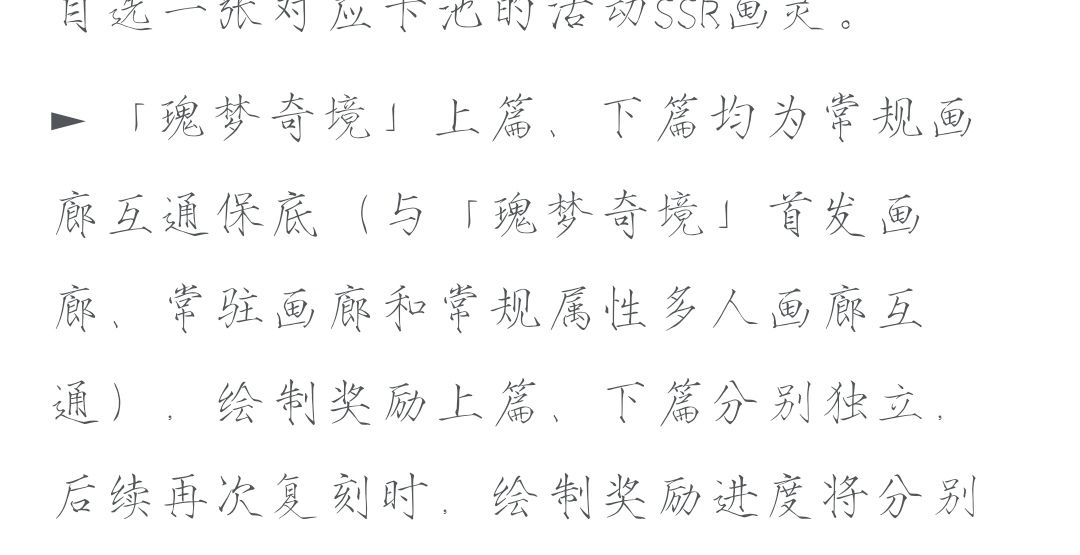 自选一张对应卡池的活动SSR画灵。
►「瑰梦奇境」上篇、下篇均为常规画
廊互通保底（与「瑰梦奇境」首发画
廊、常驻画廊和常规属性多人画廊互
通），绘制奖励上篇、下篇分别独立，
后续再次复刻时，绘制奖励进度将分别